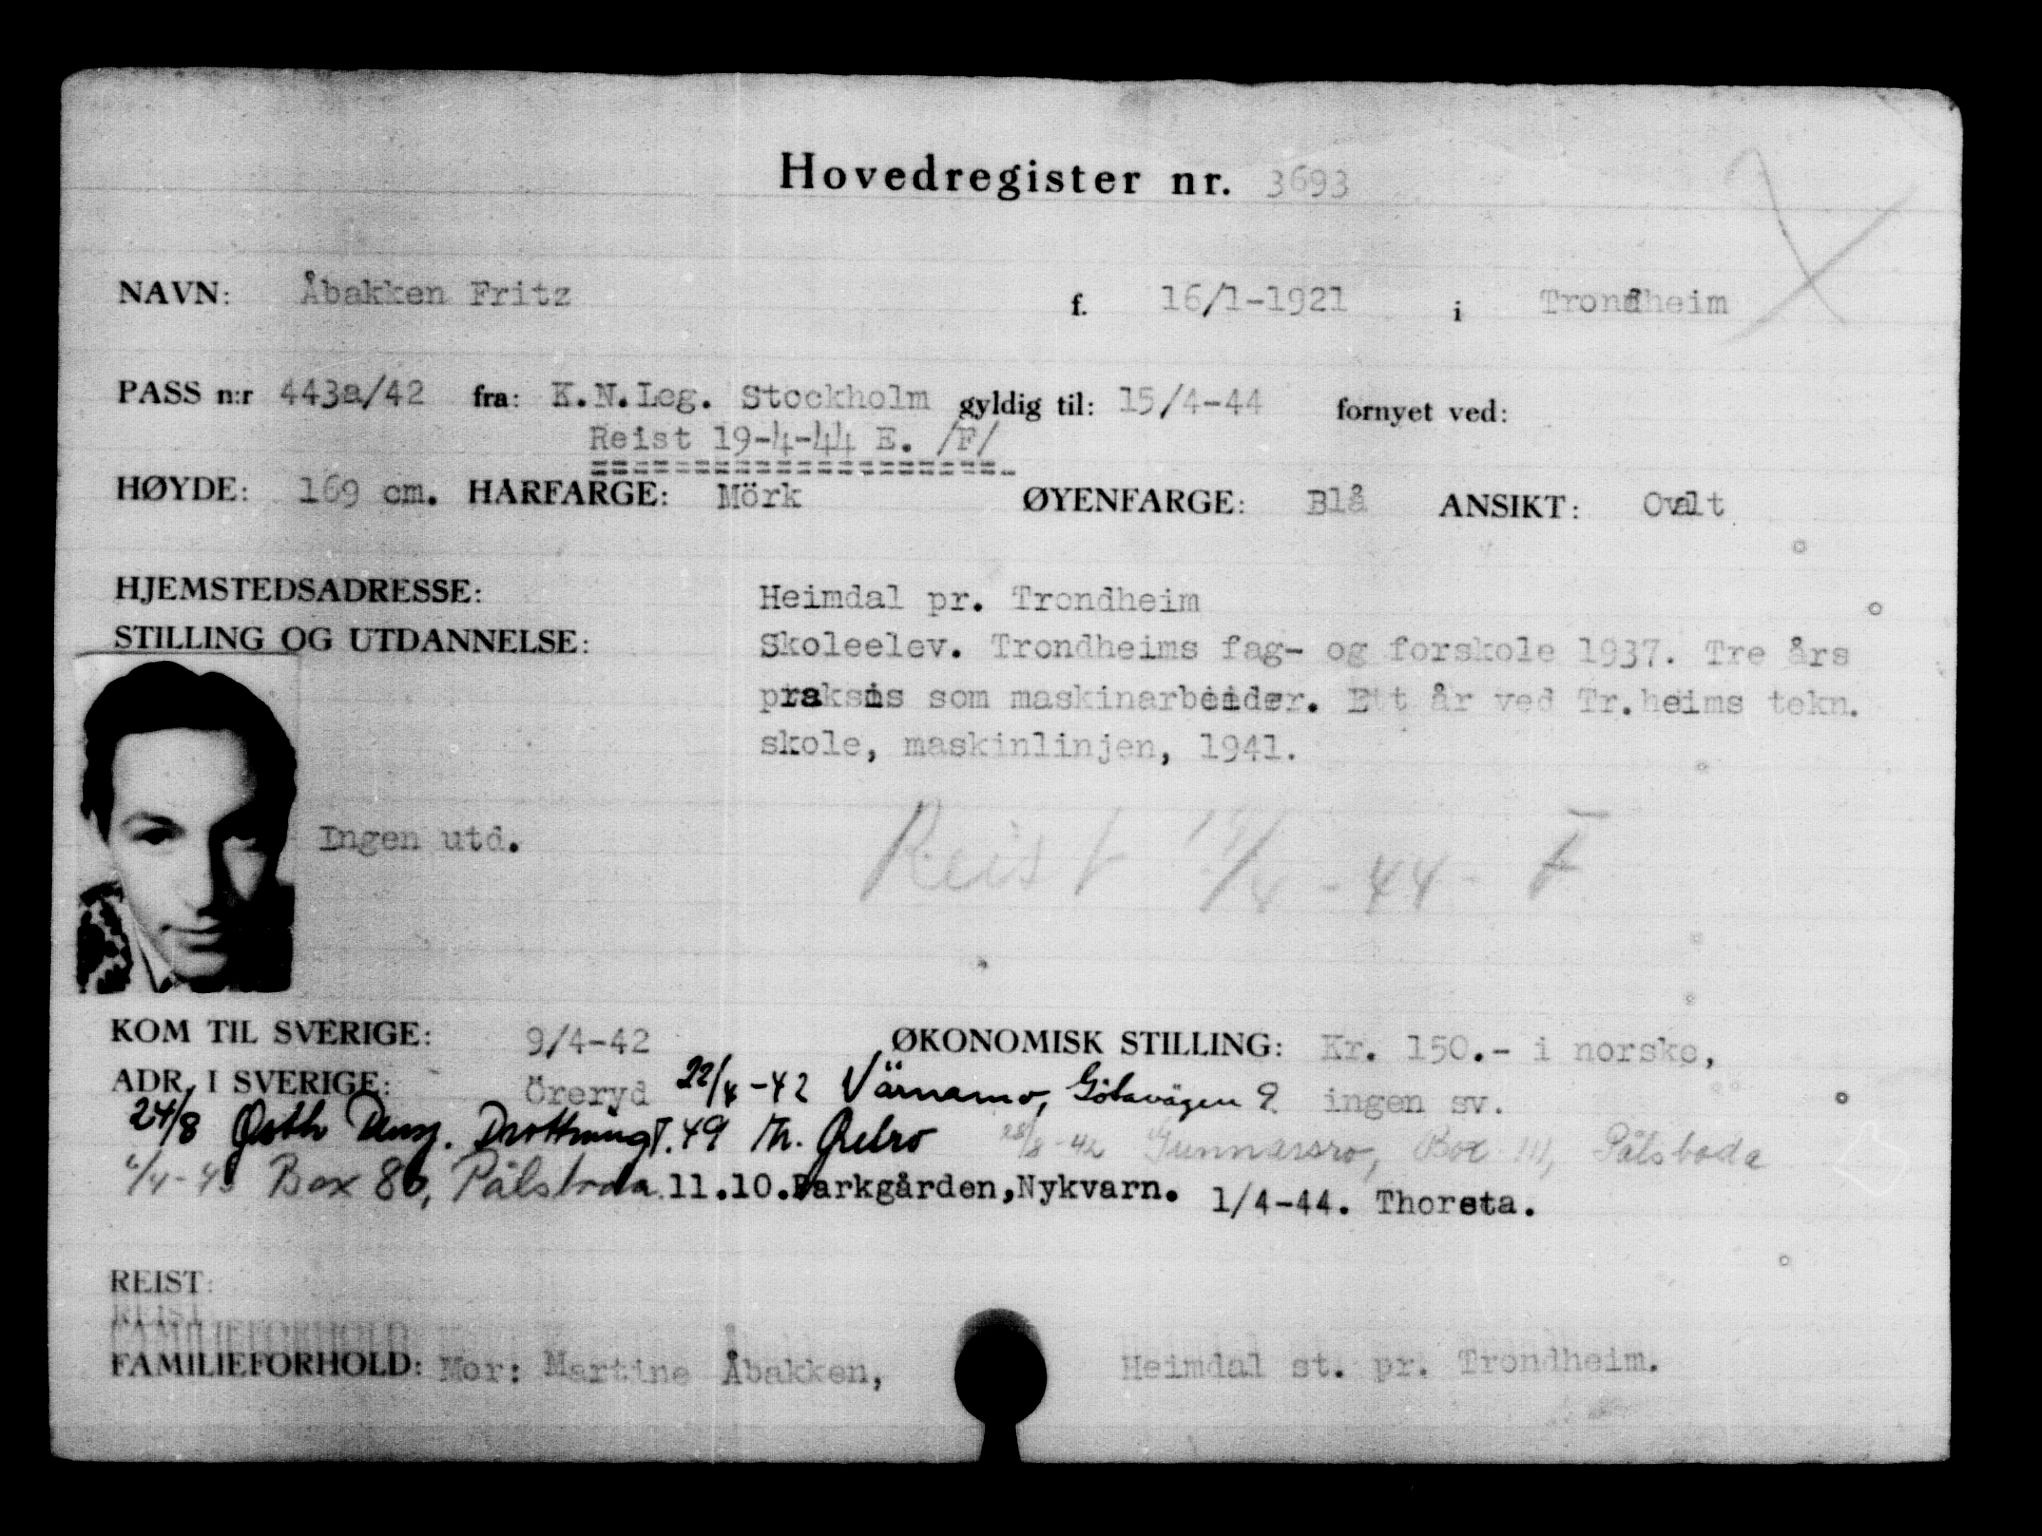 Hovedregister nr. 3693
NAVN: Åbakken Fritz f. 16/1-1921 i Trondheim
PASS n:r 443a/42 fra: K.N.Leg. Stockholm gyldig til: 15/4-44 fornyet ved:
Reist 19-4-44 E. /F/
HØYDE: 169 cm. HÅRFARGE: Mörk ØYENFARGE: Blå ANSIKT: Ovalt
HJEMSTEDSADRESSE: Heimdal pr. Trondheim
STILLING OG UTDANNELSE: Skoleelev. Trondheims fag- og forskole 1937. Tre års
praksis som maskinarbeider. Ett år ved Tr.heims tekn.
skole, maskinlinjen, 1941.
Ingen utd.
Reist 19/4-44- F
KOM TIL SVERIGE: 9/4-42 ØKONOMISK STILLING: Kr. 150.- i norske,
ADR. I SVERIGE: Öreryd 22/4-42 Värnamo, Götavägen 9 ingen sv.
24/8 Drottningg. 49 Örebro 28/8-42 Gunnarsro, Box 111, Pålsboda
Box 86, Pålsboda 11.10.Parkgården,Nykvarn. 1/4-44. Thoresta.
REIST:
REIST
FAMILIEFORHOLD:
FAMILIEFORHOLD: Mor: Martine Åbakken, Heimdal st. pr. Trondheim.